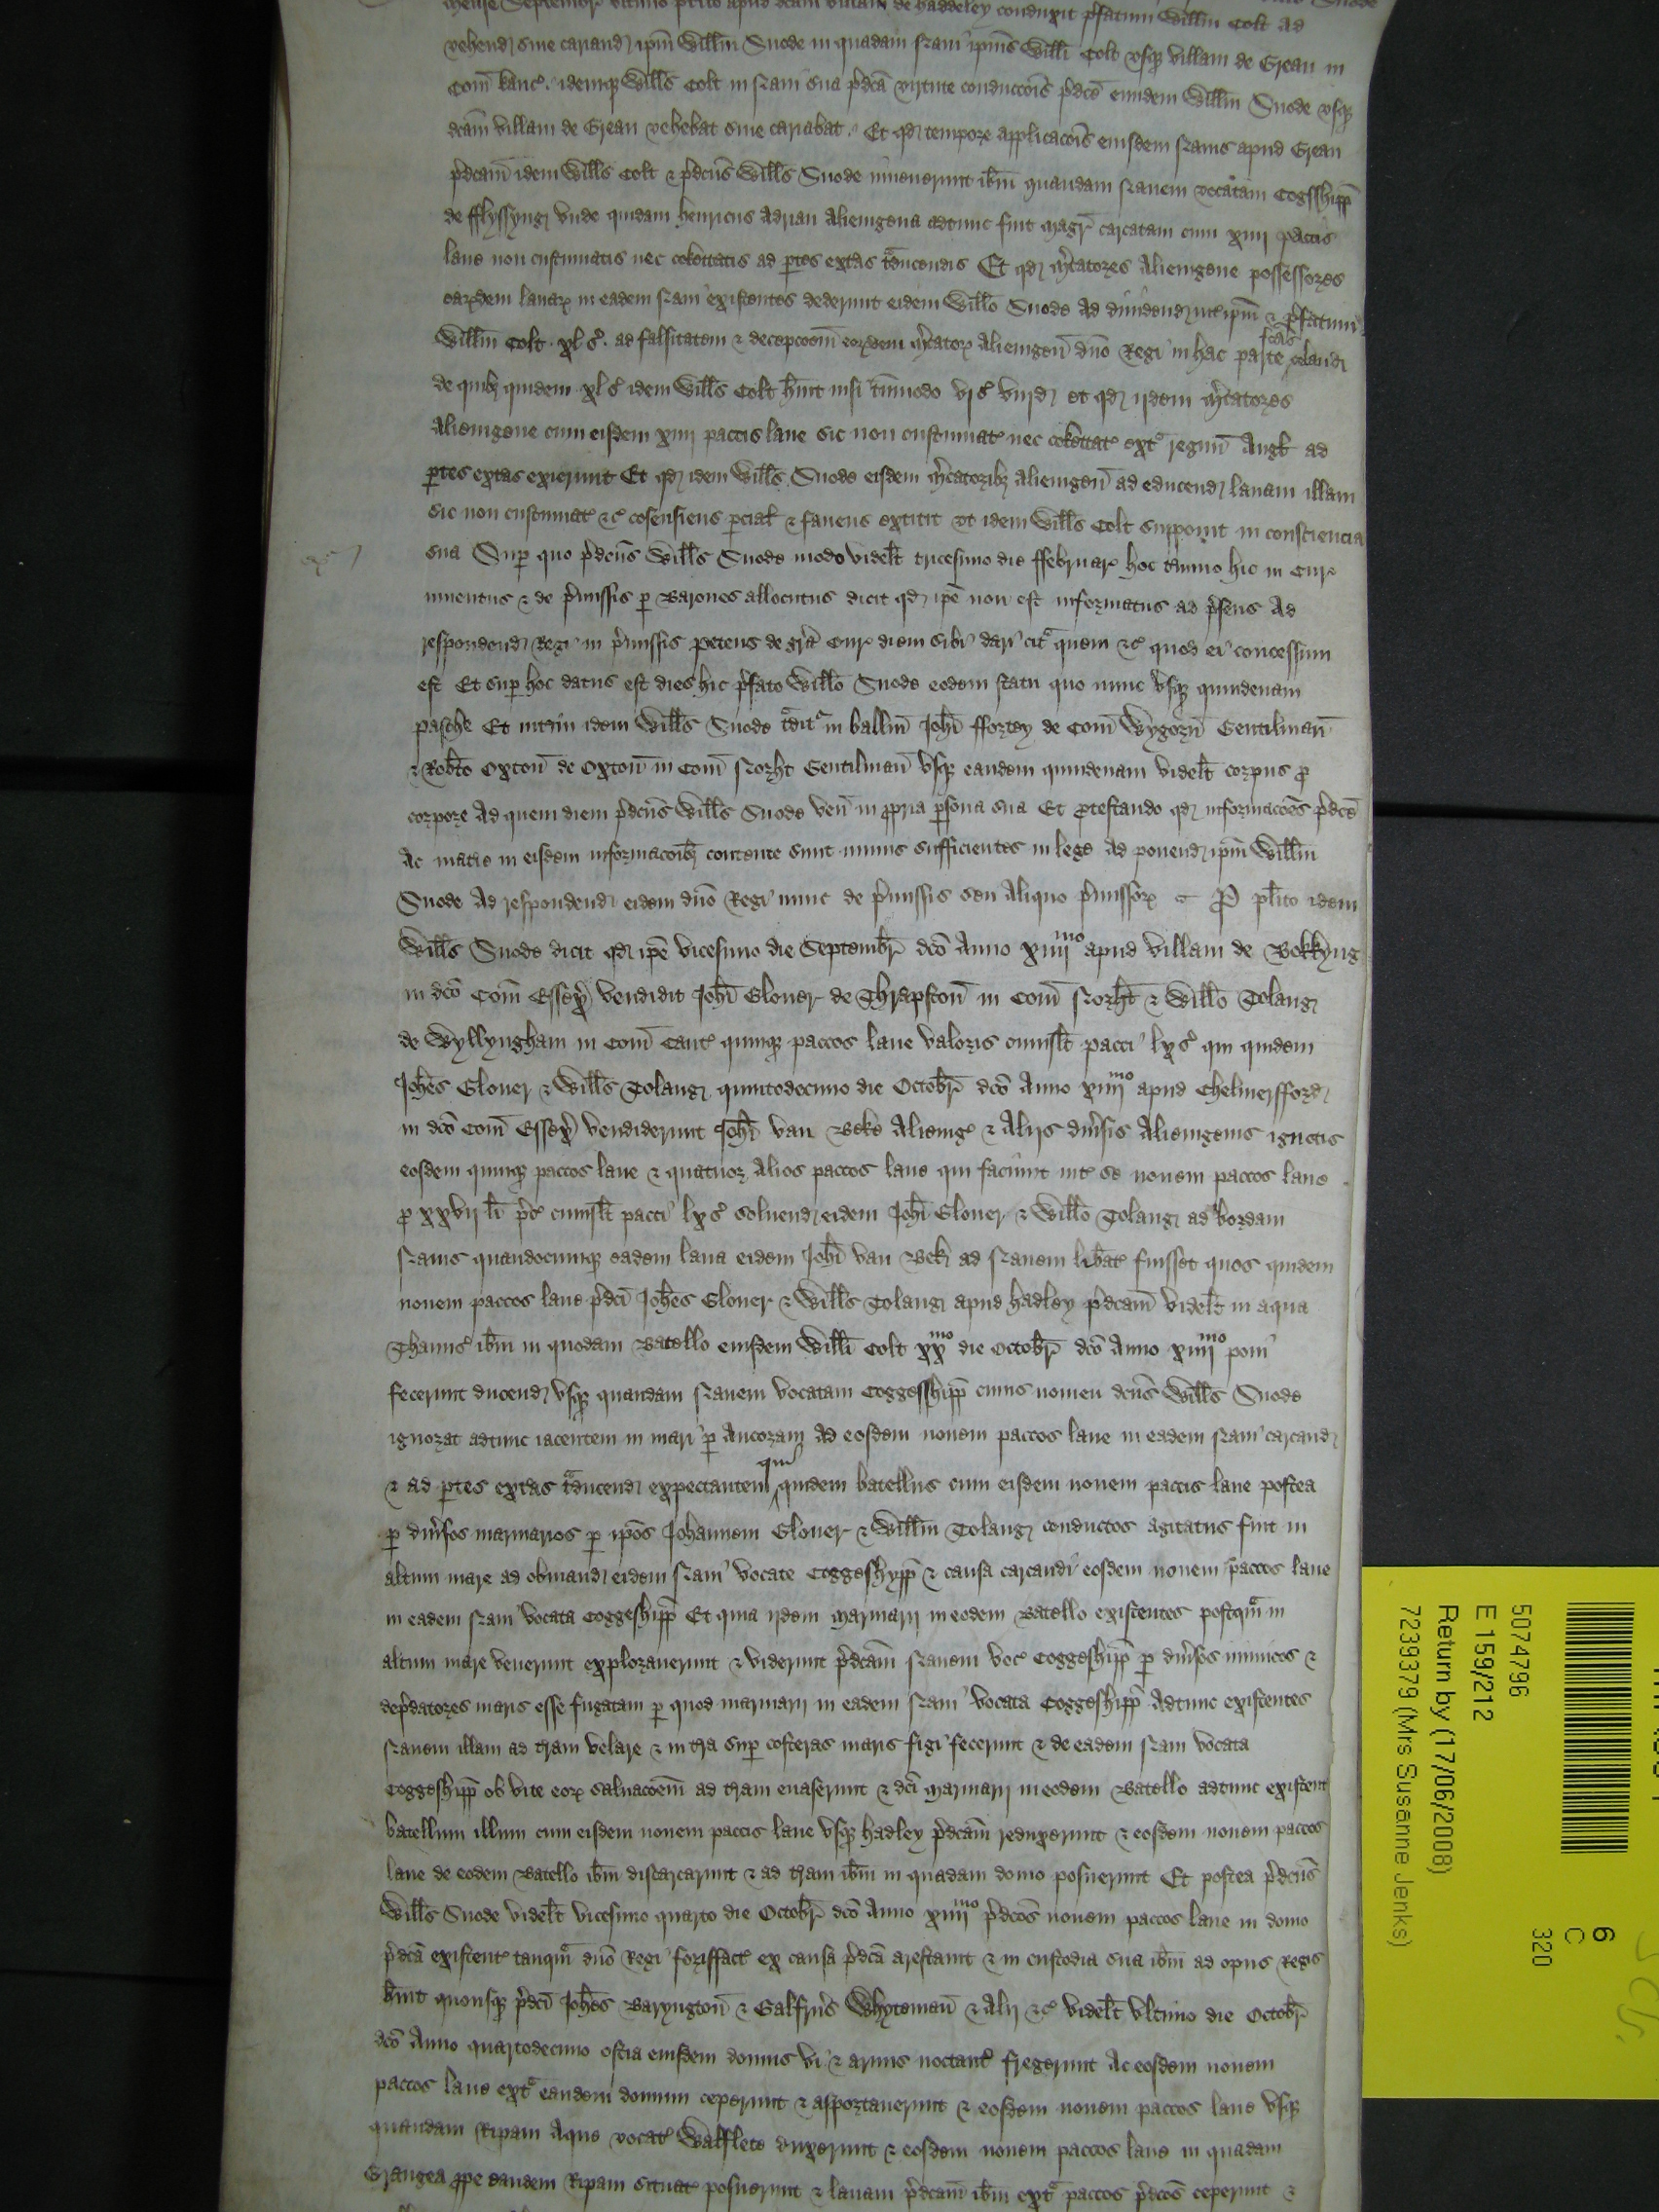 mense Septembr̄ ultimo p̄terito apud dc̄am villam de Haddeley conduxit p̄fatum Will̄m Colt ad
vehend siue cariand ip̄m Will̄m Snode in quadam Naui ip̄ius Will̄i Colt vsq̢ villam de Grean in
Com̄ Kanc̄ . idemq̢ Will̄s Colt in Naui sua p̄dc̄a virtute conduccōis p̄dc̄e eundem Will̄m Snode vsq̢
dc̄am villam de Grean vehebat siue cariabat . Et qd tempore applicacōis eiusdem Nauis apud Grean
p̄dcam̄ idem Will̄s Colt & p̄dcūs Will̄s Snode inuenerunt ib̄m quandam Nauem vocatam Cogsshipp̄
de fflyssyng vnde quidam henricus Adrian Alienigena adtunc fuit magr̄ carcatam cum xiiij paccis
lane non custumatis nec cokettatis ad p̄tes ext̄as t̄ducendis Et qd m̄catores Alienigene possessores
earundem lanar̄ in eadem Naui existentes dederunt eidem Will̄o Snode ad diuidend int̄ ip̄m & p̄fatum
Will̄m Colt xl s̄ . ad falsitatem & decepcōem eordem m̄cator̄ Alienigen̄ dn̄o Regi in hac parte celandi
de quib̢ quidem xl s̄ idem Will̄s Colt h̄uit nisi tm̄modo vj s̄ viij d et qd ijdem m̄catores
Alienigene cum eisdem xiiij paccis lane sic non custumat̄ nec cokettat̄ ext̄ regnū Angl̄ ad
p̄tes ext̄as exierunt Et qd idem Will̄s Snode eisdem m̄catorib̢ Alienigen̄ ad educend lanam illam
sic non custumat̄ &c̄ cosensiens p̄cial̄ & fauens extitit vt idem Will̄s Colt supponit in consciencia
sua Sup̄ quo p̄dcūs Will̄s Snode modo videl̄t tricesimo die ffebruar̄ hoc t̄mino hic in Cur̄
inuentus & de p̄missis p̄ Barones allocutus dicit qd ip̄e non est informatus ad p̄sens ad
respondend Regi in p̄missis petens de gr̄a Cur̄ diem sibi dari cit̄ quem &c̄ quod ei concessum
est Et sup̄ hoc datus est dies hic p̄fato Will̄o Snode eodem statu quo nunc vsq̢ quindenam
pasche Et int̄im idem Will̄s Snode t̄dit̄ in balliū Joh̄i ffortey de Com̄ Wygorn̄ Gentilman̄
& Rob̄to Oxton̄ de Oxton̄ in Com̄ Norht̄ Gentilman̄ vsq̢ eandem quindenam videl̄t corpus p̄
corpore Ad quem diem p̄dcūs Will̄s Snode ven̄ in p̄pria p̄sona sua Et p̄testando qd informacōes p̄dc̄e
Ac mat̄ie in eisdem informacōib̢ contente sunt minus sufficientes in lege ad ponend ip̄m Will̄m
Snode ad respondend eidem dn̄o Regi nunc de p̄missis seu aliquo p̄missor̄ P̄ pl̄ito idem
Will̄s Snode dicit qd ip̄e vicesimo die Septembr̄ dc̄o Anno xiiijmo apud villam de Bekkyng
in dc̄o Com̄ Essex̄ vendidit Joh̄i Glouer de Thrapston̄ in Com̄ Norht̄ & Will̄o Tolang
de Wyllyngham in Com̄ Cant̄ quinq̢ paccos lane valoris cuiusl̄t pacci lx s̄ qui quidem
Joh̄es Glouer & Will̄s Tolang quintodecimo die Octobr̄ dc̄o Anno xiiijmo apud Chelmersfford
in dc̄o Com̄ Essex̄ vendiderunt Joh̄i van Beke Alieniḡ & Alijs diūsis Alienigenis ignotis
eosdem quinq̢ paccos lane & quatuor Alios paccos lane qui faciunt int̄ se nouem paccos lane
p̄ xxvij li p̄c̄ cuiusl̄t pacci lx s̄ soluend eidem Joh̄i Glouer & Will̄o Tolang ad bordam
Nauis quandocumq̢ eadem lana eidem Joh̄i van Bek ad Nauem lib̄at̄ fuisset quos quidem
nouem paccos lane p̄dc̄i Joh̄es Glouer & Will̄s Tolang apud Hadley p̄dcam̄ videl̄t in aqua
Thamis̄ ib̄m in quodam Batello eiusdem Will̄i Colt xxmo die Octobr̄ dc̄o Anno xiiijmo poni
fecerunt ducend vsq̢ quandam Nauem vocatam Coggesshipp̄ cuius nomen dcūs Will̄s Snode
ignorat adtunc iacentem in mari p̄ Ancoram ad eosdem nouem paccos lane in eadem Naui carcand
& ad p̄tes ext̄as t̄ducend expectantem qui quidem batellus cum eisdem nouem paccis lane postea
p̄ diūsos marinarios p̄ ip̄os Johannem Glouer & Will̄m Tolang conductos agitatus fuit in
altum mare ad obuiand eidem Naui vocate Coggeshypp̄ & causa carcandi eosdem nouem paccos lane
in eadem Naui vocata Coggeshipp̄ Et quia ijdem marinarij in eodem Batello existentes postqm̄ in
altum mare venerunt explorauerunt & viderunt p̄dcam̄ Nauem voc̄ Coggeshipp̄ p̄ diūsos inimicos &
dep̄datores maris esse fugatam p̄ quod marinarij in eadem Naui vocata Coggeshipp̄ adtunc existentes
Nauem illam ad t̄ram velare & in t̄ra sup̄ costeras maris figi fecerunt & de eadem Naui vocata
Coggeshipp̄ ob vite eor̄ saluacōem ad t̄ram euaserunt & dc̄i marinarij in eodem Batello adtunc existent̄
batellum illum cum eisdem nouem paccis lane vsq̢ Hadley p̄dcam̄ reduxerunt & eosdem nouem paccos
lane de eodem Batello ib̄m discarcarunt & ad t̄ram ib̄m in quadam domo posuerunt Et postea p̄dcūs
Will̄s Snode videl̄t vicesimo quarto die Octobr̄ dc̄o Anno xiiijmo p̄dcōs nouem paccos lane in domo
p̄dc̄a existent̄ tanqm̄ dn̄o Regi forisfact̄ ex causa p̄dc̄a arestauit & in custodia sua ib̄m ad opus Regis
h̄uit quousq̢ p̄dc̄i Joh̄es Baryngton̄ & Galfrūs Whyteman̄ & Alij &c̄ videl̄t vltimo die Octobr̄
dc̄o Anno quartodecimo ostia eiusdem domus vi & armis noctant̄ fregerunt Ac eosdem nouem
paccos lane ext̄ eandem domum ceperunt & asportauerunt & eosdem nouem paccos lane vsq̢
quandam Ripam Aque vocat̄ Walflete duxerunt & eosdem nouem paccos lane in quadam
Grangea p̄pe eandem Ripam situat̄ posuerunt & lanam p̄dcam̄ ib̄m ext̄ paccos p̄dcōs ceperunt &
5074796
E 159/212
Return by (17/06/2008)
7239379 (Mrs Susanne Jenks)
6
C
320